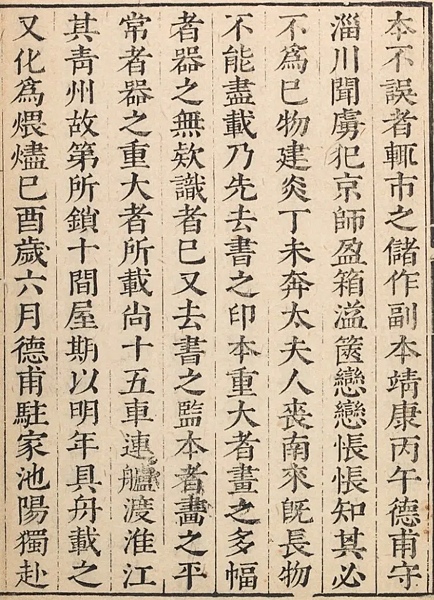 本不誤者輒市之儲作副本靖康丙午德甫守
淄川聞虜犯京師盈箱溢篋戀戀悵悵知其必
不爲巳物建炎丁未奔太夫人喪南來旣長物
不能盡載乃先去書之印本重大者畫之多幅
者器之無欵識者巳又去書之監本者畫之平
常者器之重大者所載尚十五車連艫渡淮江
其靑州故第所鎖十間屋期以明年具舟載之
又化爲煨燼巳酉歲六月德甫駐家池陽獨赴